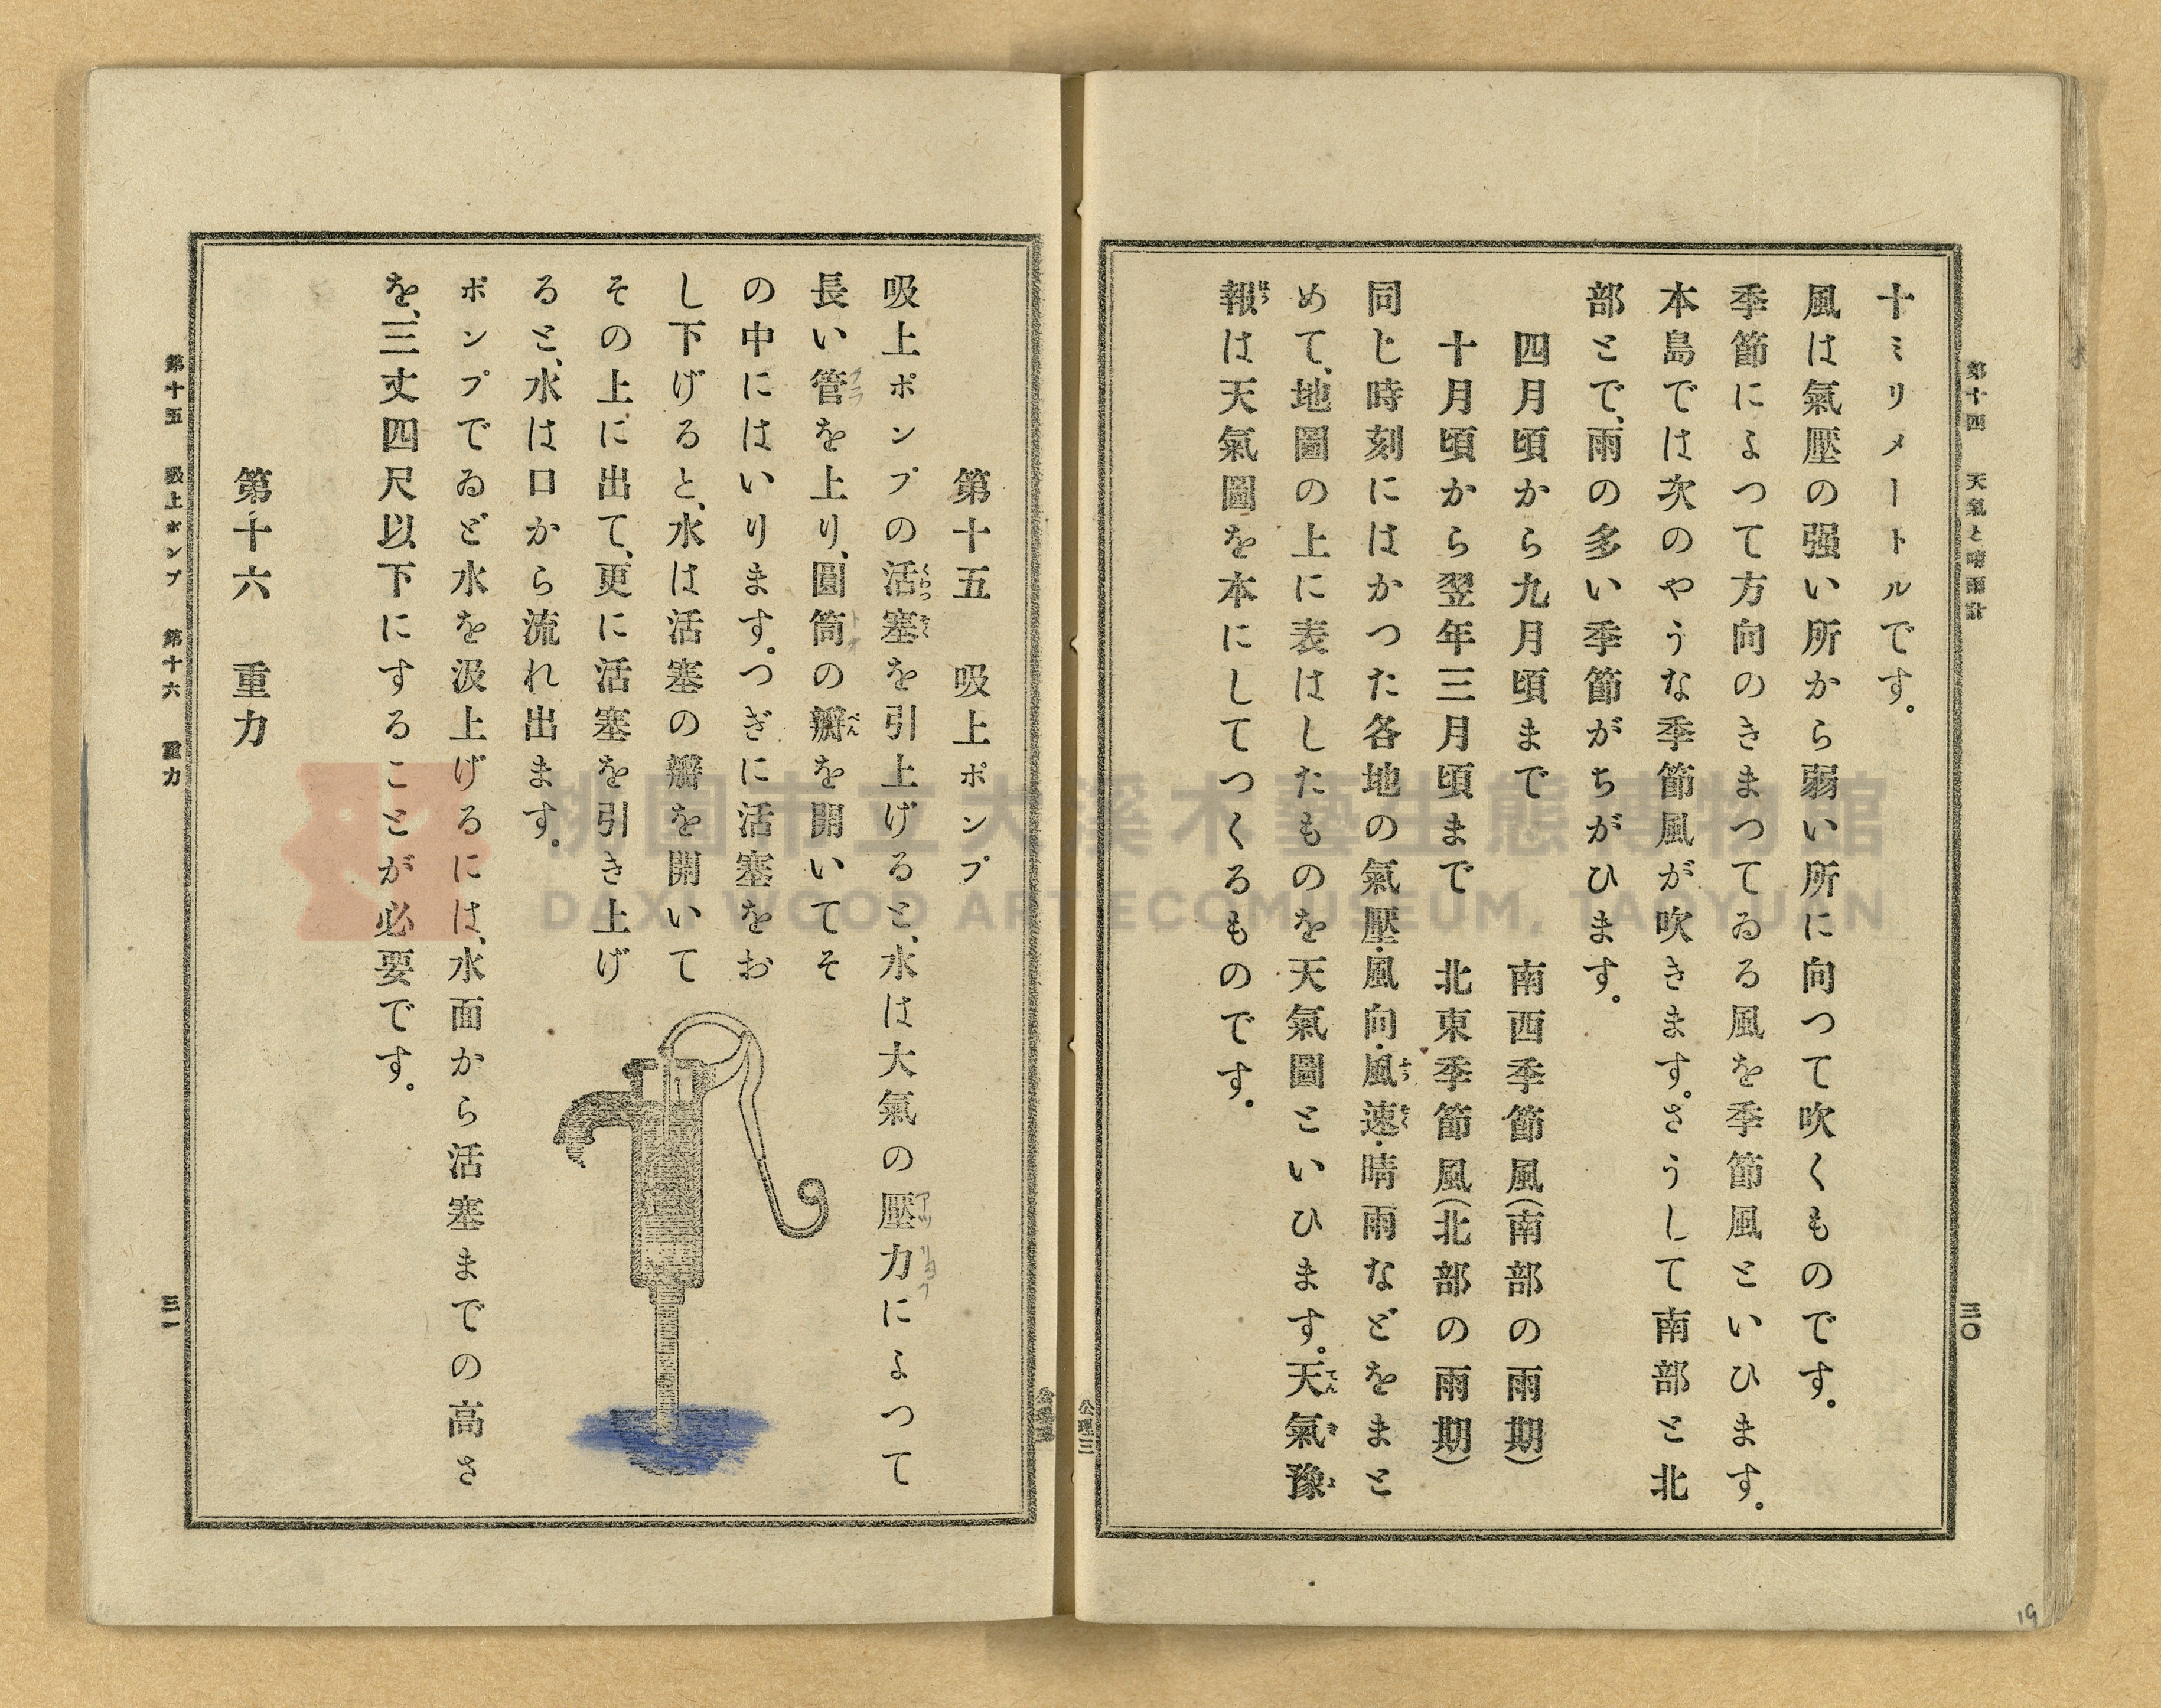 第十四 天氣と晴雨計 三〇
十ミリメートルです。
風は氣壓の强い所から弱い所に向つて吹くものです。
季節によつて方向のきまつてゐる風を季節風といひます。
本島では次のやうな季節風が吹きます。さうして南部と北
部とで、雨の多い季節がちがひます。
四月頃から九月頃まで 南西季節風(南部の雨期)
十月頃から翌年三月頃まで 北東季節風(北部の雨期)
同じ時刻にはかつた各地の氣壓・風向・風速・晴雨などをまと
めて、地圖の上に表はしたものを天氣圖といひます。天氣豫
報は天氣圖を本にしてつくるものです。
公理三
第十五 吸上ポンプ
吸上ポンプの活塞を引上げると、水は大氣の壓力によつて
長い管を上り、圓筒の瓣を開いてそ
の中にはいります。つぎに活塞をお
し下げると、水は活塞の瓣を開いて
その上に出て、更に活塞を引き上げ
ると、水は口から流れ出ます。
ポンプでゐど水を汲上げるには、水面から活塞までの高さ
を、三丈四尺以下にすることが必要です。
第十六 重力
第十五 吸上ポンプ 第十六 重力 三一
桃園市立大溪木藝生態博物館
DAXI WOOD ART ECOMUSEUM, TAOYUAN
19